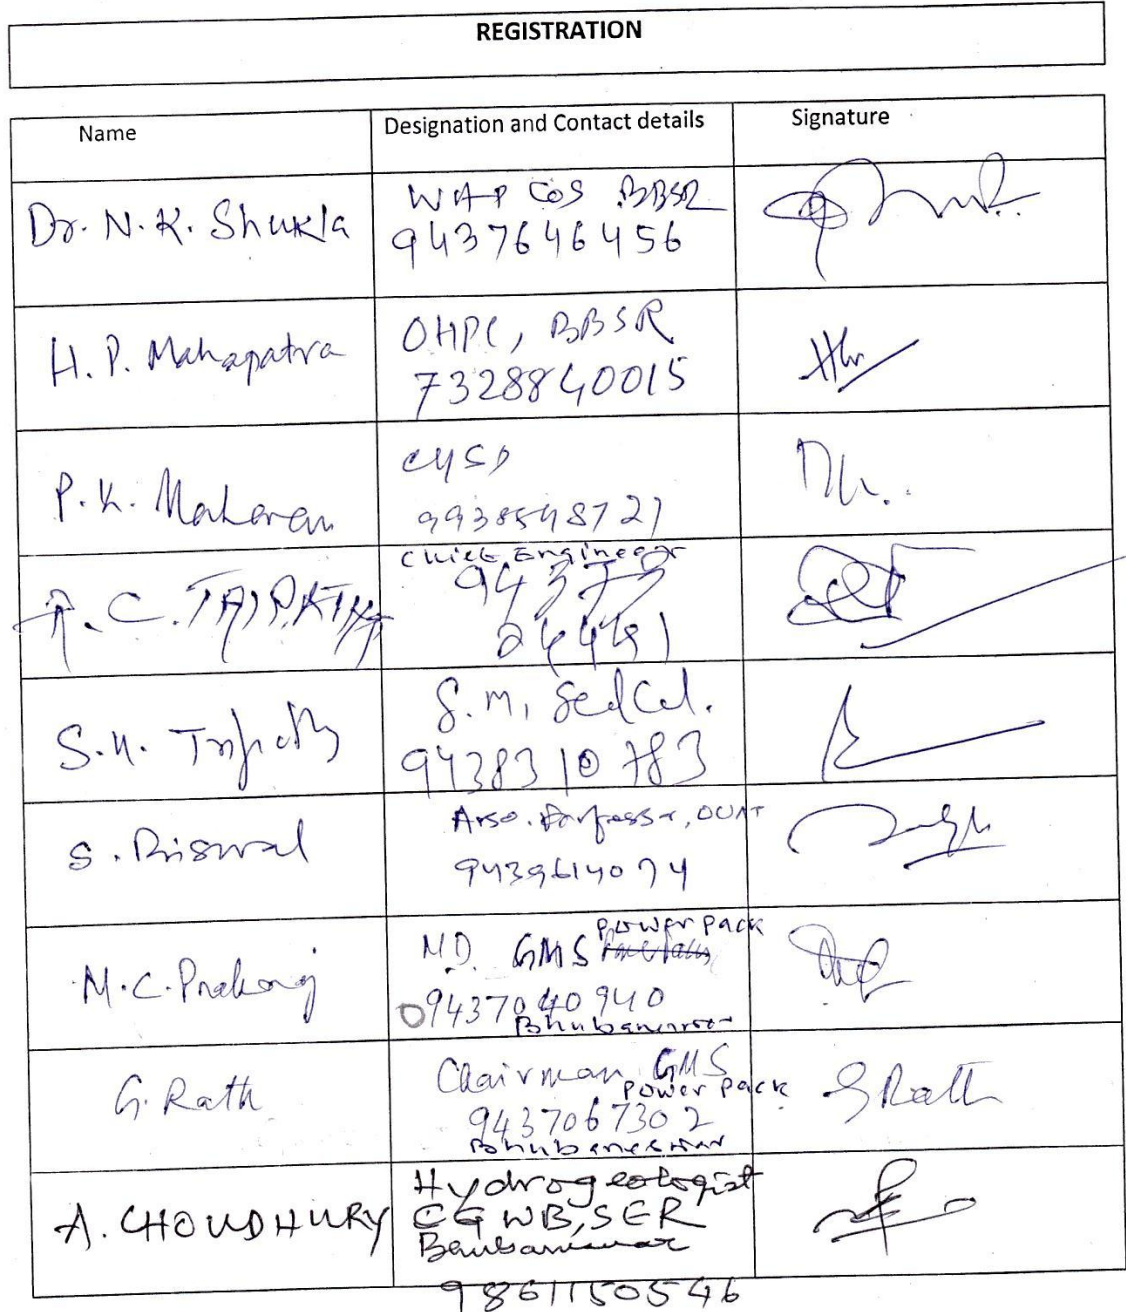 REGISTRATION
Name Designation and Contact details Signature
Dr. N. K. Shukla
WAPCOS BBSR
9437646456
H. P. Mahapatra
OHPC, BBSR
7328840015
P. K. Maharana
CYSD
9938548721
C. TRIPATHY
Chief Engineer
94373
S. K. Tripathy
9438310783
S. Biswal
Asso. Professor, OUAT
9439614074
M. C.
MD. GMS Power Pack
09437040940
Bhubaneswar
G. Rath
Chairman GMS
Power Pack
9437067302
Bhubaneswar
G Rath
A. CHOUDHURY
Hydrogeologist
CGWB, SER
Bhubaneswar
9861150546